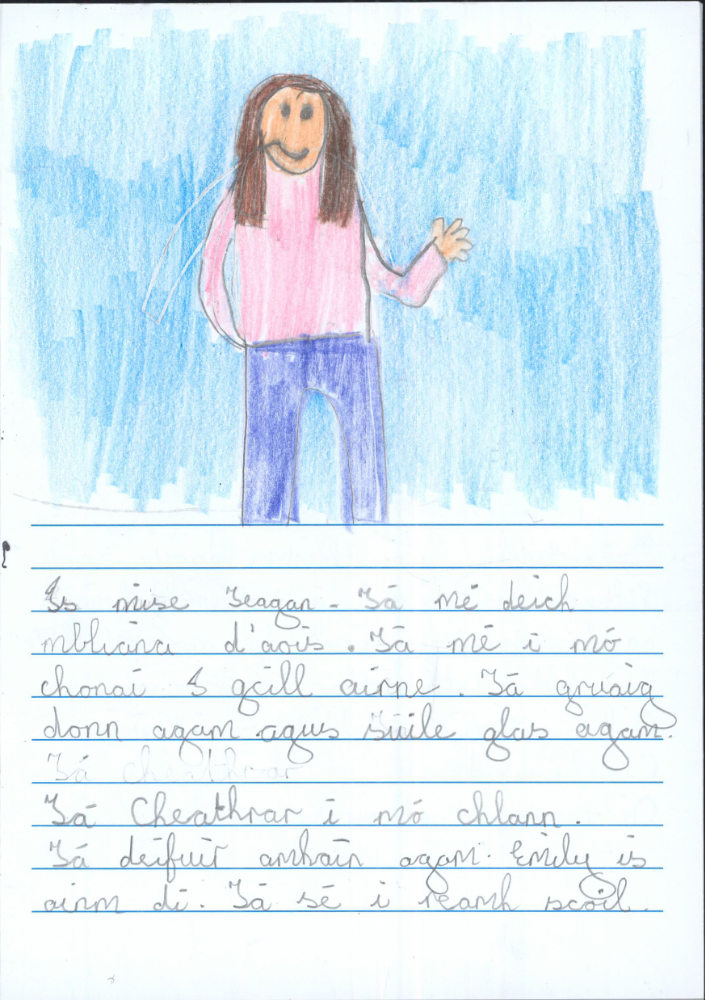 Is mise Teagan. Tá mé deich
mbliana d'aois. Tá mé i mó
chonaí I gcill airne. Tá gruaig
donn agam agus Súile glas agam.
Tá cheathrar
Tá Cheathrar i mó chlann.
Tá deifuir amháin agam. Emily is
ainm di. Tá sé i reamh scoil.